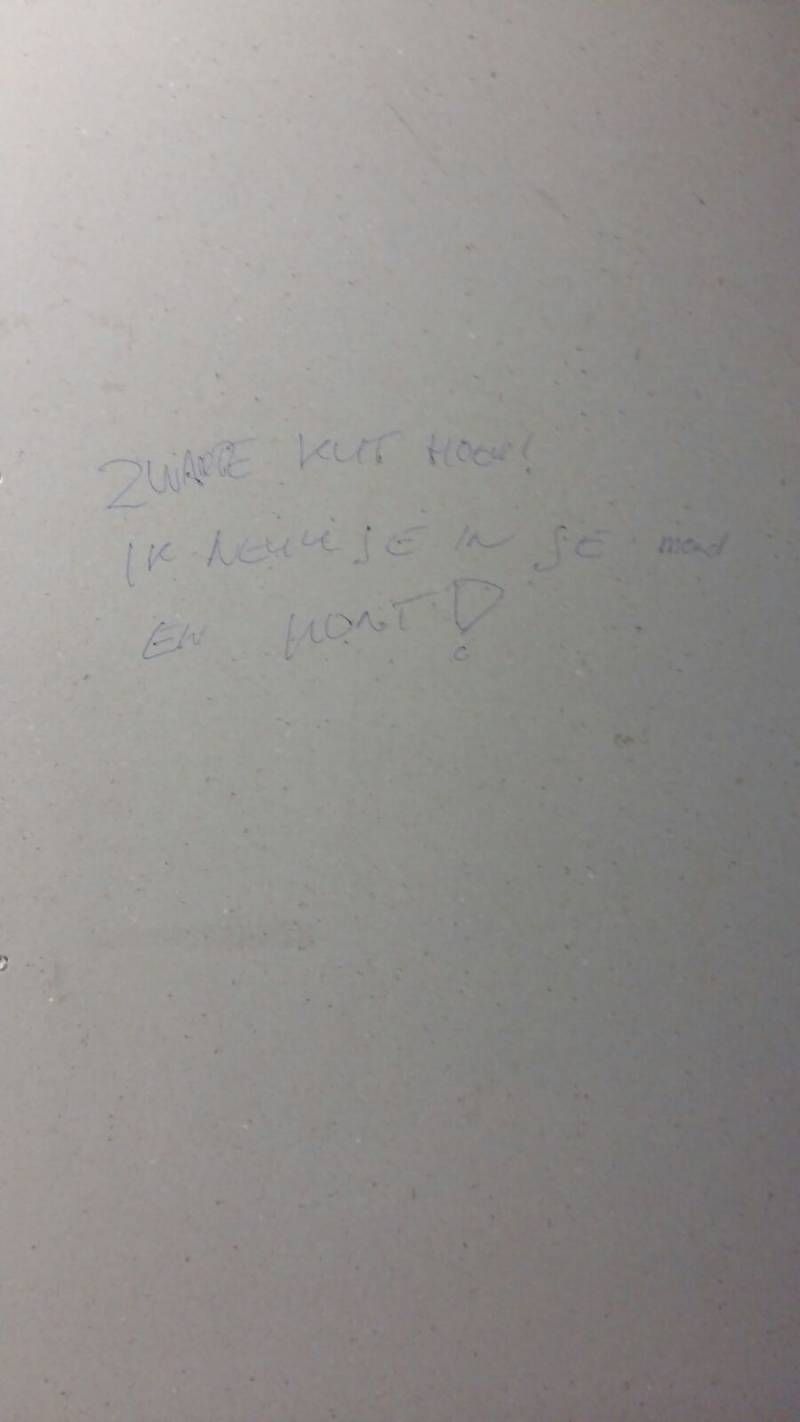 ZWARTE KUT HOER!
IK NEUK JE IN JE mond
EN KONT!